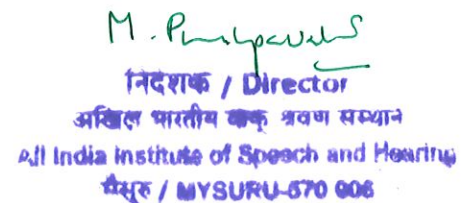 M. Pushpavathi
निदेशक / Director
अखिल भारतीय वाक् श्रवण संस्थान
All India Institute of Speech and Hearing
मैसूरु / MYSURU-570 006